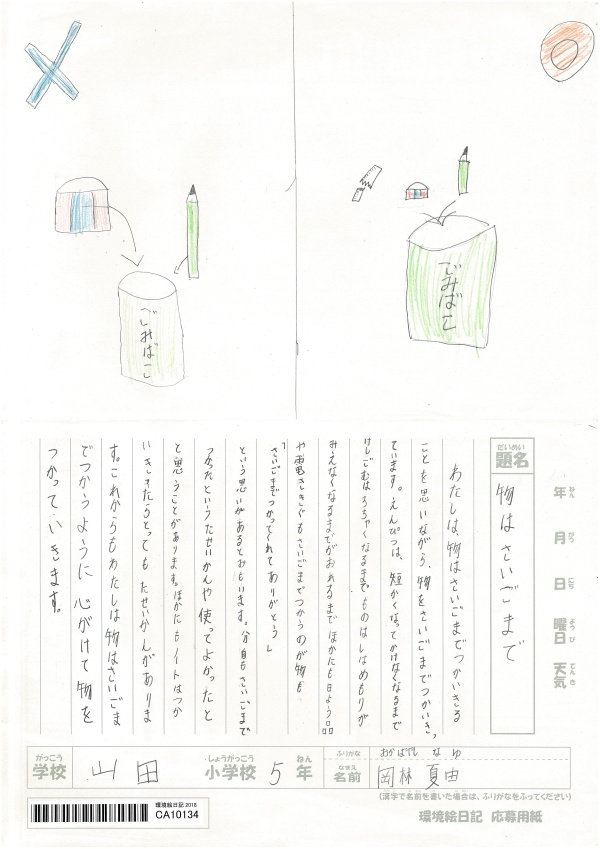 ごみばこ
ごみばこ
だいめい
題名
物はさいごまで
年 ねん
月 がつ
日 にち
曜日 ようび
天気 てんき
わたしは、物はさいごまでつかいきる
ことを思いながら、物をさいごまでつかいきっ
ています。えんぴつは、短かくなってかけなくなるまで
けしごむはちっちゃくなるまでものはしはめもりが
みえなくなるまでがおれるまでほかにも日よう品
や電きききぐもさいごまでつかうのが物も
「さいごまでつかってくれてありがとう」
という思いがあるとおもいます。分自もさいごまで
つかったというたせいかんや使ってよかったと
と思うことがあります。ほかにもノートはつか
いきったらとってもたせいかんがありま
す。これからもわたしは物はさいごま
でつかうように心がけて物を
つかっていきます。
がっこう
学校
山田
しょうがっこう
小学校
5
ねん
年
ふりがな
おかばやし なゆ
なまえ
名前
岡林 夏由
(漢字で名前を書いた場合は、ふりがなをふってください)
環境絵日記 2018
CA10134
環境絵日記 応募用紙